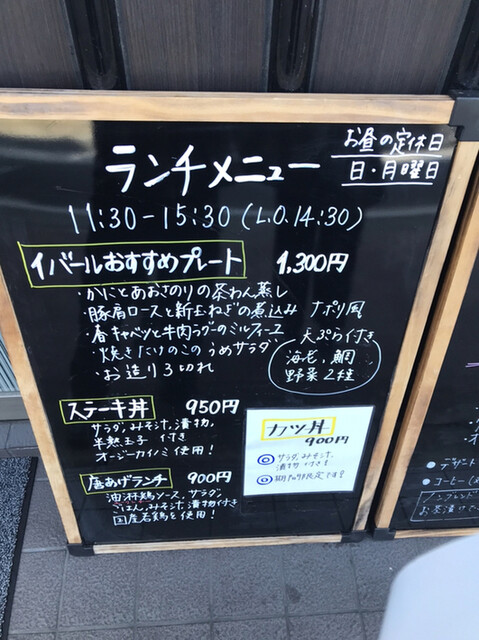 お昼の定休日
日・月曜日
ランチメニュー
11:30-15:30(L.O.14:30)
イバールおすすめプレート 1,300円
・かにとあおさのりの茶わん蒸し
・豚肩ロースと新玉ねぎの煮込み ナポリ風
・春キャベツと牛肉ラグーのミルフィーユ
・焼きたけのこのうめサラダ
・お造り3切れ
天ぷら付き
海老、鯛
野菜2種
ステーキ丼 950円
サラダ、みそ汁、漬物、
半熟玉子 付き
オージーカイノミ使用!
唐あげランチ 900円
油淋鶏ソース、サラダ、
ごはん、みそ汁、漬物付き
国産若鶏を使用!
カツ丼
900円
◎ サラダ、みそ汁、
漬物 付き
◎ 期間限定です
● デザート
● コーヒー
ノンアルコ
お茶漬けで